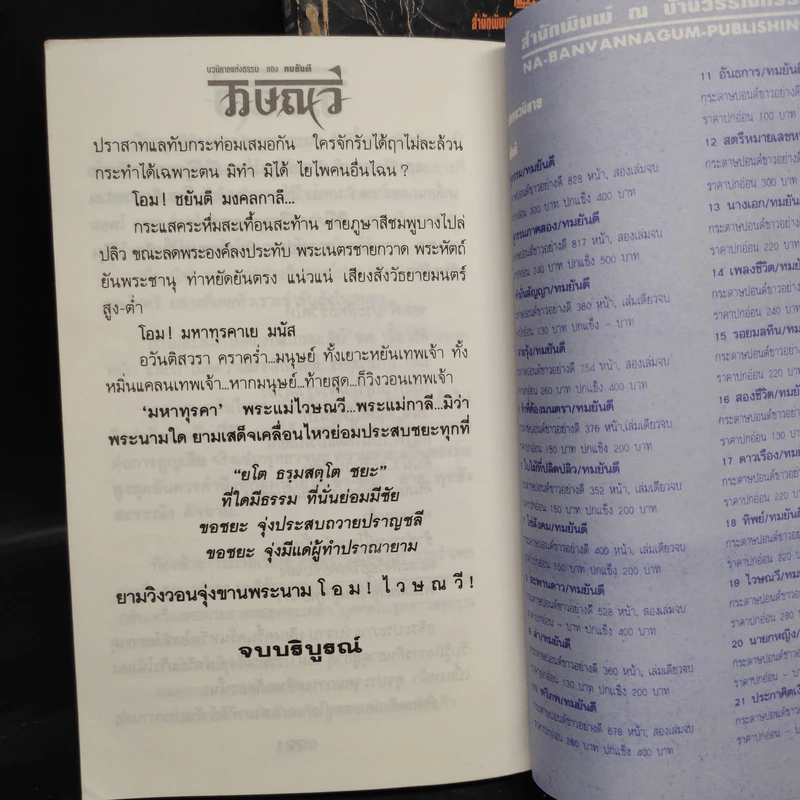 สำนักพิมพ์
นวนิยายแห่งธรรม ของ ทมยันตี
ไวษณวี
ปราสาทแลทับกระท่อมเสมอกัน ใครจักรับได้ฤาไม่ละล้วน
กระทำได้เฉพาะตน มิทำ มิได้ ไยไพคนอื่นไฉน ?
โอม! ชยันตี มงคลกาลี...
กระแสครุะหึ่มสะเทื้อนสะท้าน ชายภูษาสีชมพูบางไปล่
ปลิว ขณะลดพระองค์ลงประทับ พระเนตรชายกวาด พระหัตถ์
ยันพระชานุ ท่าหยัดยันตรง แน่วแน่ เสียงสังวัธยายมนตร์
สูง-ต่ำ
โอม! มหาทุรคาเย มนัส
อวันติสวรา คราคร่ำ...มนุษย์ ทั้งเยาะหยันเทพเจ้า ทั้ง
หมิ่นแคลนเทพเจ้า...หากมนุษย์...ท้ายสุด...ก็วิงวอนเทพเจ้า
'มหาทุรคา' พระแม่ไวษณวี...พระแม่กาลี...มิว่า
พระนามใด ยามเสด็จเคลื่อนไหวย่อมประสบชยะทุกที่
"ยโต ธรฺมสตฺโต ชยะ"
ที่ใดมีธรรม ที่นั่นย่อมมีชัย
ขอชยะ จุ่งประสบถวายปราญชลี
ขอชยะ จุ่งมีแด่ผู้ทำปราณายาม
ยามวิงวอนจุ่งขานพระนาม โ อ ม ! ไ ว ษ ณ วี !
จบบริบูรณ์
สำนักพิมพ์ ณ บ้านวรรณกรรม
NA-BANVANNAGUM-PUBLISHIN
/ทมยันตี
828 หน้า, สองเล่มจบ
300 บาท ปกแข็ง 400 บาท
ภาคสอง/ทมยันตี
817 หน้า, สองเล่มจบ
240 บาท ปกแข็ง 500 บาท
สัญญา/ทมยันตี
380 หน้า, เล่มเดียวจบ
130 บาท ปกแข็ง - บาท
รุ้ง/ทมยันตี
754 หน้า, สองเล่มจบ
260 บาท ปกแข็ง 400 บาท
ที่ต้องมนตรา/ทมยันตี
376 หน้า,เล่มเดียวจบ
150 บาท ปกแข็ง 200 บาท
ใบไม้ที่ปลิดปลิว/ทมยันตี
352 หน้า, เล่มเดียวจบ
150 บาท ปกแข็ง 200 บาท
ไฟ่สังคม/ทมยันตี
400 หน้า, เล่มเดียวจบ
150 บาท ปกแข็ง 200 บาท
สะพานดาว/ทมยันตี
528 หน้า, สองเล่มจบ
- บาท ปกแข็ง 400 บาท
ล่า/ทมยันตี
360 หน้า, เล่มเดียวจบ
130 บาท ปกแข็ง 200 บาท
ทวิภพ/ทมยันตี
678 หน้า, สองเล่มจบ
260 บาท ปกแข็ง 400 บาท
11 อันธการ/ทมยันตี
กระดาษปอนด์ขาวอย่างดี
ราคาปกอ่อน 100 บาท
12 สตรีหมายเลขห
กระดาษปอนด์ขาวอย่างดี
ราคาปกอ่อน 300 บาท
13 นางเอก/ทมยันตี
กระดาษปอนด์ขาวอย่างดี
ราคาปกอ่อน 220 บาท
14 เพลงชีวิต/ทมยันตี
กระดาษปอนด์ขาวอย่างดี
ราคาปกอ่อน 240 บาท
15 รอยมลทิน/ทมยันตี
กระดาษปอนด์ขาวอย่างดี
ราคาปกอ่อน 220 บาท
16 สองชีวิต/ทมยันตี
กระดาษปอนด์ขาวอย่างดี
ราคาปกอ่อน 130 บาท
17 ดาวเรือง/ทมยันตี
กระดาษปอนด์ขาวอย่างดี
ราคาปกอ่อน - บาท
18 ทิพย์/ทมยันตี
กระดาษปอนด์ขาวอย่างดี
ราคาปกอ่อน 220 บาท
19 ไวษณวี/ทมยันตี
กระดาษปอนด์ขาวอย่างดี
ราคาปกอ่อน 280 บาท
20 นายกหญิง/
กระดาษปอนด์ขาวอย่างดี
ราคาปกอ่อน 220
21 ประกาศิต
กระดาษปอนด์
ราคาปกอ่อน